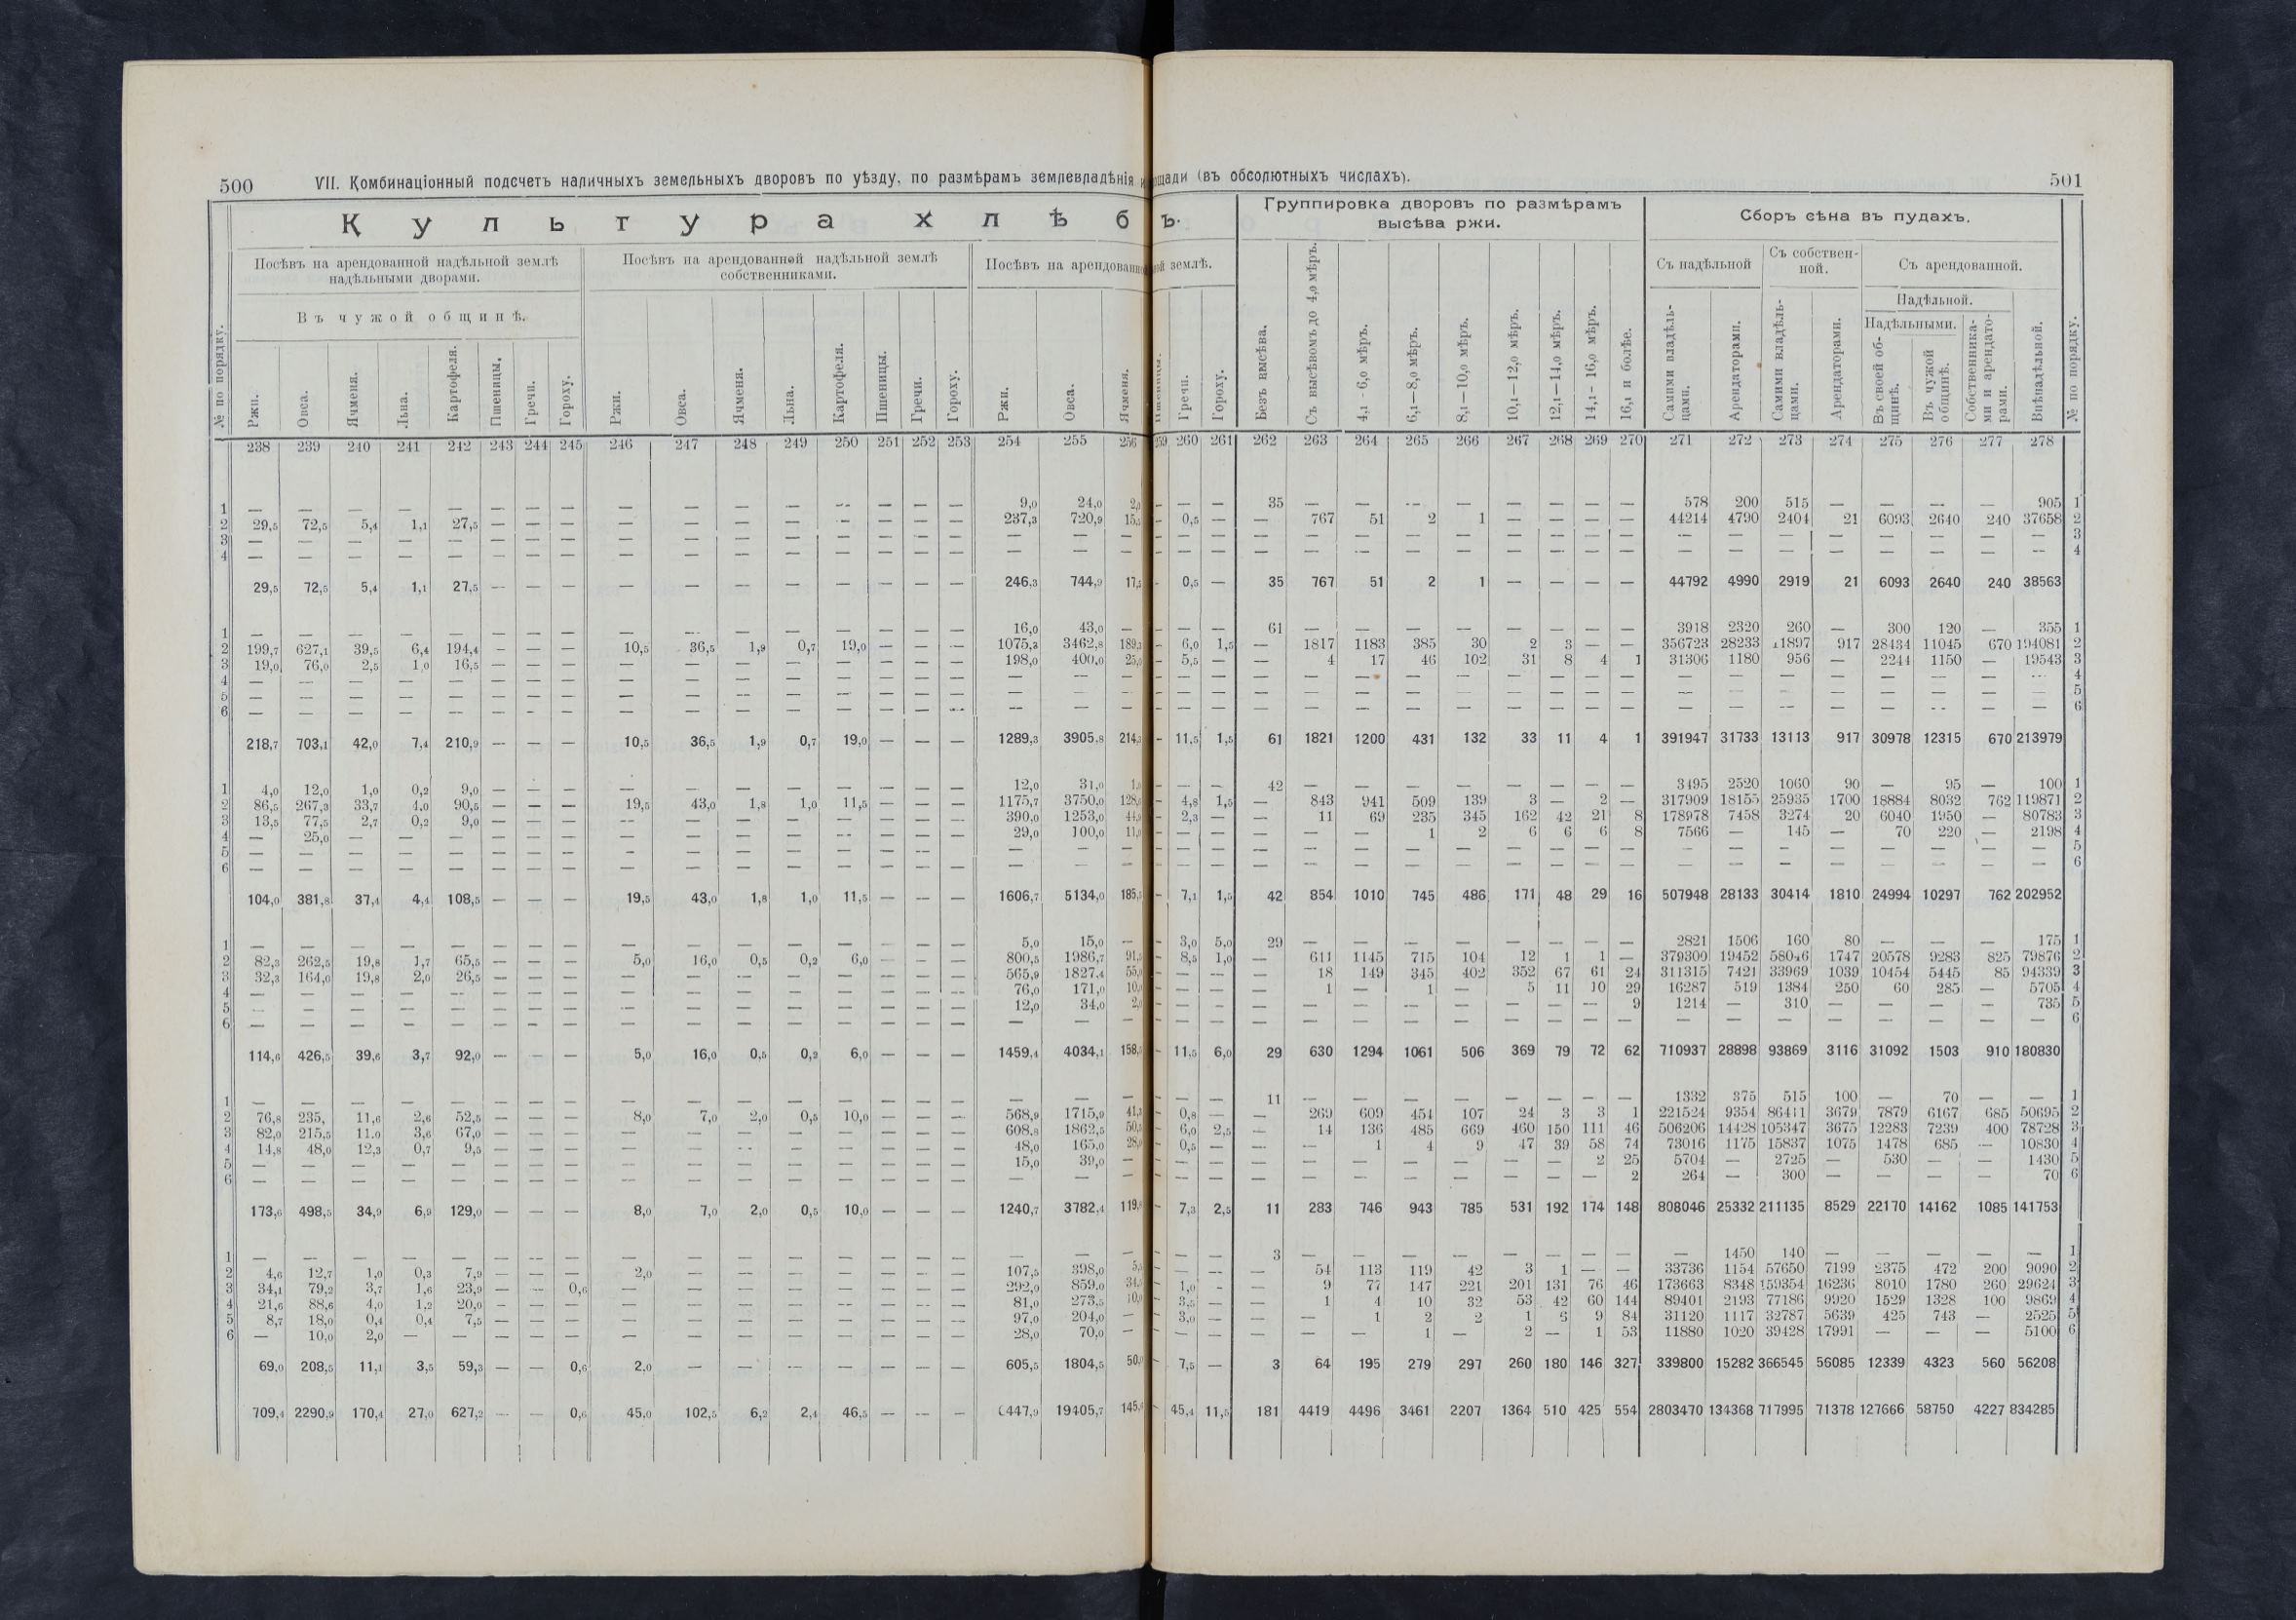 500 VII. Комбинаціонный подсчетъ наличныхъ земельныхъ дворовъ по уѣзду, по размѣрамъ землевладѣнія и
ощади (въ обсолютныхъ числахъ). 501
Культура хлѣбъ.
Группировка дворовъ по размѣрамъ высѣва ржи.
Сборъ сѣна въ пудахъ.
Посѣвъ на арендованной надѣльной землѣ надѣльными дворами.
Посѣвъ на арендованной надѣльной землѣ собственниками.
Посѣвъ на арендованной землѣ.
Съ надѣльной
Съ собственной.
Съ арендованной.
Въ чужой общинѣ.
Надѣльной.
Надѣльными.
№ по порядку. Ржи. Овса. Ячменя. Льна. Картофеля. Пшеницы. Гречи. Гороху. Ржи. Овса. Ячменя. Льна. Картофеля. Пшеницы. Гречи. Гороху. Ржи. Овса. Ячменя. Пшеницы. Гречи. Гороху. Безъ высѣва. Съ высѣвомъ до 4,0 мѣръ. 4,1-6,0 мѣръ. 6,1—8,0 мѣръ. 8,1—10,0 мѣръ. 10,1—12,0 мѣръ. 12,1—14,0 мѣръ. 14,1-16,0 мѣръ. 16,1 и болѣе. Самими владѣльцами. Арендаторами. Самими владѣльцами. Арендаторами. Въ своей общинѣ. Въ чужой общинѣ. Собственниками и арендаторами. Внѣнадѣльной. № по порядку.
238 239 240 241 242 243 244 245 246 247 248 249 250 251 252 253 254 255 256 259 260 261 262 263 264 265 266 267 268 269 270 271 272 273 274 275 276 277 278
1 — — — — — — — — — — — — — — — — 9,0 24,0 — — — 35 — — — — — — — — 578 200 515 — — — — 905 1
2 29,5 72,5 5,4 1,1 27,5 — — — — — — — — — — — 237,3 720,9 — 0,5 — — 767 51 2 1 — — — — 44214 4790 2404 21 6093 2640 240 37658 2
3 — — — — — — — — — — — — — — — — — — — — — — — — — — — — — — — — — — — — — — — 3
4 — — — — — — — — — — — — — — — — — — — — — — — — — — — — — — — — — — — — — — — 4
29,5 72,5 5,4 1,1 27,5 — — — — — — — — — — — 246,3 744,9 — 0,5 — 35 767 51 2 1 — — — — 44792 4990 2919 21 6093 2640 240 38563
1 — — — — — — — — — — — — — — — — 16,0 43,0 — — — — 61 — — — — — — — — 3918 2320 260 — 300 120 — 355 1
2 199,7 627,1 39,5 6,4 194,4 — — — 10,5 36,5 1,9 0,7 19,0 — — — 1075,3 3462,8 — 6,0 1,5 — 1817 1183 385 30 2 3 — — 356723 28233 11897 917 28434 11045 670 194081 2
3 19,0 76,0 2,5 1,0 16,5 — — — — — — — — — — — 198,0 400,0 — 5,5 — — 4 17 46 102 31 8 4 1 31306 1180 956 — 2244 1150 — 19543 3
4 — — — — — — — — — — — — — — — — — — — — — — — — — — — — — — — — — — — — — — — 4
5 — — — — — — — — — — — — — — — — — — — — — — — — — — — — — — — — — — — — — — — 5
6 — — — — — — — — — — — — — — — — — — — — — — — — — — — — — — — — — — — — — — — 6
218,7 703,1 42,0 7,4 210,9 — — — 10,5 36,5 1,9 0,7 19,0 — — — 1289,3 3905,8 — 11,5 1,5 61 1821 1200 431 132 33 11 4 1 391947 31733 13113 917 30978 12315 670 213979
1 4,0 12,0 1,0 0,2 9,0 — — — — — — — — — — — 12,0 31,0 — — — 42 — — — — — — — — 3495 2520 1060 90 — 95 — 100 1
2 86,5 267,3 33,7 4,0 90,5 — — — 19,5 43,0 1,8 1,0 11,5 — — — 1175,7 3750,0 — 4,8 1,5 — 843 941 509 139 3 — 2 — 317909 18155 25935 1700 18884 8032 762 119871 2
3 13,5 77,5 2,7 0,2 9,0 — — — — — — — — — — — 390,0 1253,0 — 2,3 — — 11 69 235 345 162 42 21 8 178978 7458 3274 20 6040 1950 — 80783 3
4 — 25,0 — — — — — — — — — — — — — — 29,0 100,0 — — — — — — 1 2 6 6 6 8 7566 — 145 — 70 220 — 2198 4
5 — — — — — — — — — — — — — — — — — — — — — — — — — — — — — — — — — — — — — — — 5
6 — — — — — — — — — — — — — — — — — — — — — — — — — — — — — — — — — — — — — — — 6
104,0 381,8 37,4 4,4 108,5 — — — 19,5 43,0 1,8 1,0 11,5 — — — 1606,7 5134,0 — 7,1 1,5 42 854 1010 745 486 171 48 29 16 507948 28133 30414 1810 24994 10297 762 202952
1 — — — — — — — — — — — — — — — — 5,0 15,0 — — 3,0 5,0 29 — — — — — — — — 2821 1506 160 80 — — — 175 1
2 82,3 262,5 19,8 1,7 65,5 — — — 5,0 16,0 0,5 0,2 6,0 — — — 800,5 1986,7 — 8,5 1,0 — 611 1145 715 104 12 1 1 — 379300 19452 58046 1747 20578 9283 825 79876 2
3 32,3 164,0 19,8 2,0 26,5 — — — — — — — — — — — 565,9 1827,4 — — — — 18 149 345 402 352 67 61 24 311315 7421 33969 1039 10454 5445 85 94339 3
4 — — — — — — — — — — — — — — — — 76,0 171,0 — — — — 1 — 1 — 5 11 10 29 16287 519 1384 250 60 285 — 5705 4
5 — — — — — — — — — — — — — — — — 12,0 34,0 — — — — — — — — — — — 9 1214 — 310 — — — — 735 5
6 — — — — — — — — — — — — — — — — — — — — — — — — — — — — — — — — — — — — — — — 6
114,6 426,5 39,6 3,7 92,0 — — — 5,0 16,0 0,5 0,2 6,0 — — — 1459,4 4034,1 — 11,5 6,0 29 630 1294 1061 506 369 79 72 62 710937 28898 93869 3116 31092 1503 910 180830
1 — — — — — — — — — — — — — — — — — — — — — — 11 — — — — — — — — 1332 375 515 100 — 70 — — 1
2 76,8 235, 11,6 2,6 52,5 — — — 8,0 7,0 2,0 0,5 10,0 — — — 568,9 1715,9 — 0,8 — — 269 609 454 107 24 3 3 1 221524 9354 86411 3679 7879 6167 685 50695 2
3 82,0 215,5 11,0 3,6 67,0 — — — — — — — — — — — 608,8 1862,5 — 6,0 2,5 — 14 136 485 669 460 150 111 46 506206 14428 105347 3675 12283 7239 400 78728 3
4 14,8 48,0 12,3 0,7 9,5 — — — — — — — — — — — 48,0 165,0 — 0,5 — — — 1 4 9 47 39 58 74 73016 1175 15837 1075 1478 685 — 10830 4
5 — — — — — — — — — — — — — — — — 15,0 39,0 — — — — — — — — — — — 2 25 5704 — 2725 — 530 — — 1430 5
6 — — — — — — — — — — — — — — — — — — — — — — — — — — — — — — 2 264 — 300 — — — — 70 6
173,6 498,5 34,9 6,9 129,0 — — — 8,0 7,0 2,0 0,5 10,0 — — — 1240,7 3782,4 — 7,3 2,5 11 283 746 943 785 531 192 174 148 808046 25332 211135 8529 22170 14162 1085 141753
1 — — — — — — — — — — — — — — — — — — — — — — 3 — — — — — — — — — 1450 140 — — — — — 1
2 4,6 12,7 1,0 0,3 7,9 — — — 2,0 — — — — — — — 107,5 398,0 — — — — 54 113 119 42 3 1 — — 33736 1154 57650 7199 2375 472 200 9090 2
3 34,1 79,2 3,7 1,6 23,9 — — 0,6 — — — — — — — — 292,9 859,0 — 1,0 — — 9 77 147 221 201 131 76 46 173663 8348 159354 16236 8010 1780 260 29624 3
4 21,6 88,6 4,0 1,2 20,0 — — — — — — — — — — — 81,0 273,5 — 3,5 — — 1 4 10 32 53 42 60 144 89401 2193 77186 9920 1529 1328 100 9869 4
5 8,7 18,0 0,4 0,4 7,5 — — — — — — — — — — — 97,0 204,0 — — 3,0 — — — 1 2 2 1 6 9 84 31120 1117 32787 5639 425 743 — 2525 5
6 — 10,0 2,0 — — — — — — — — — — — — — 28,0 70,0 — — — — — — — 1 — 2 — 1 53 11880 1020 39428 17991 — — — 5100 6
69,0 208,5 11,1 3,5 59,3 — — 0,6 2,0 — — — — — — — 605,5 1804,5 — 7,5 — 3 64 195 279 297 260 180 146 327 339800 15282 366545 56085 12339 4323 560 56208
709,4 2290,9 170,4 27,0 627,2 — — 0,6 45,0 102,5 6,2 2,4 46,5 — — — 447,9 19405,7 — 45,4 11,5 181 4419 4496 3461 2207 1364 510 425 554 2803470 134368 717995 71378 127666 58750 4227 834285